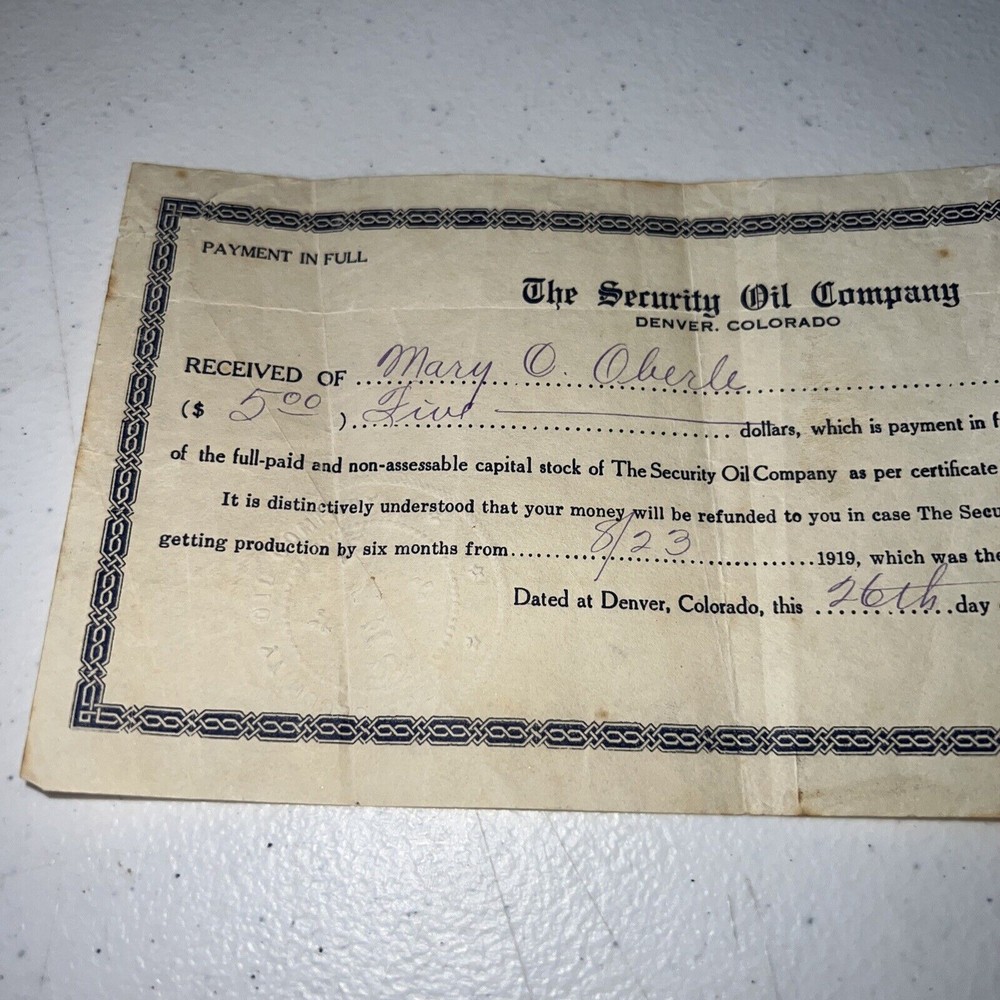 PAYMENT IN FULL
The Security Oil Company
DENVER, COLORADO
RECEIVED OF Mary O. Oberle
($ 5.00 ) Five dollars, which is payment in f
of the full-paid and non-assessable capital stock of The Security Oil Company as per certificate
It is distinctively understood that your money will be refunded to you in case The Secu
getting production by six months from 8/23 1919, which was the
Dated at Denver, Colorado, this 26th day